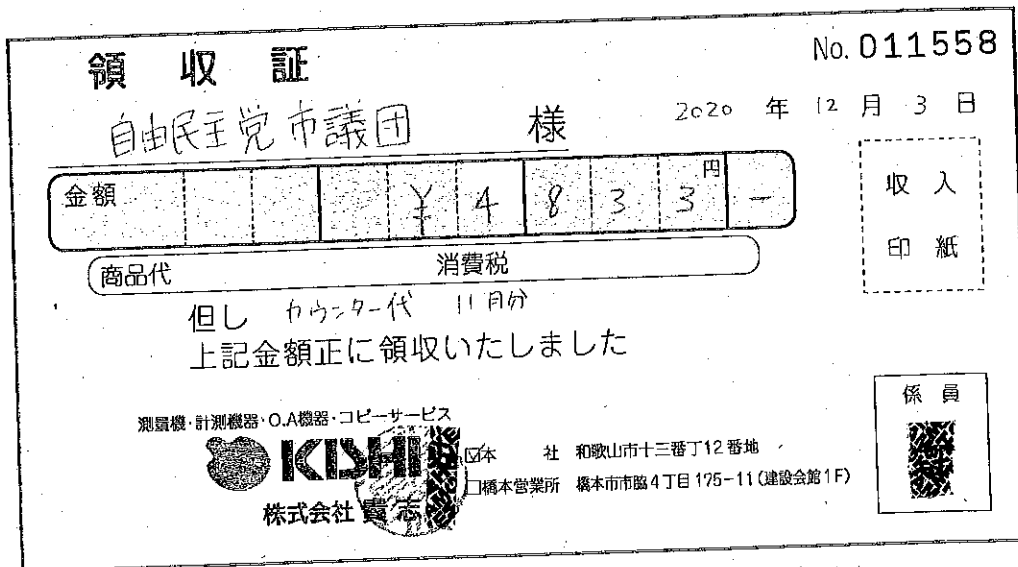 領収証
No. 011558
自由民主党市議団 様
2020 年 12 月 3 日
金額 ¥4833円-
収入
印紙
商品代 消費税
但し カウンター代 11月分
上記金額正に領収いたしました
係員
測量機・計測機器・O.A機器・コピーサービス
KISHI
株式会社 貴志
☑本社 和歌山市十三番丁12番地
□橋本営業所 橋本市市脇4丁目175-11(建設会館1F)